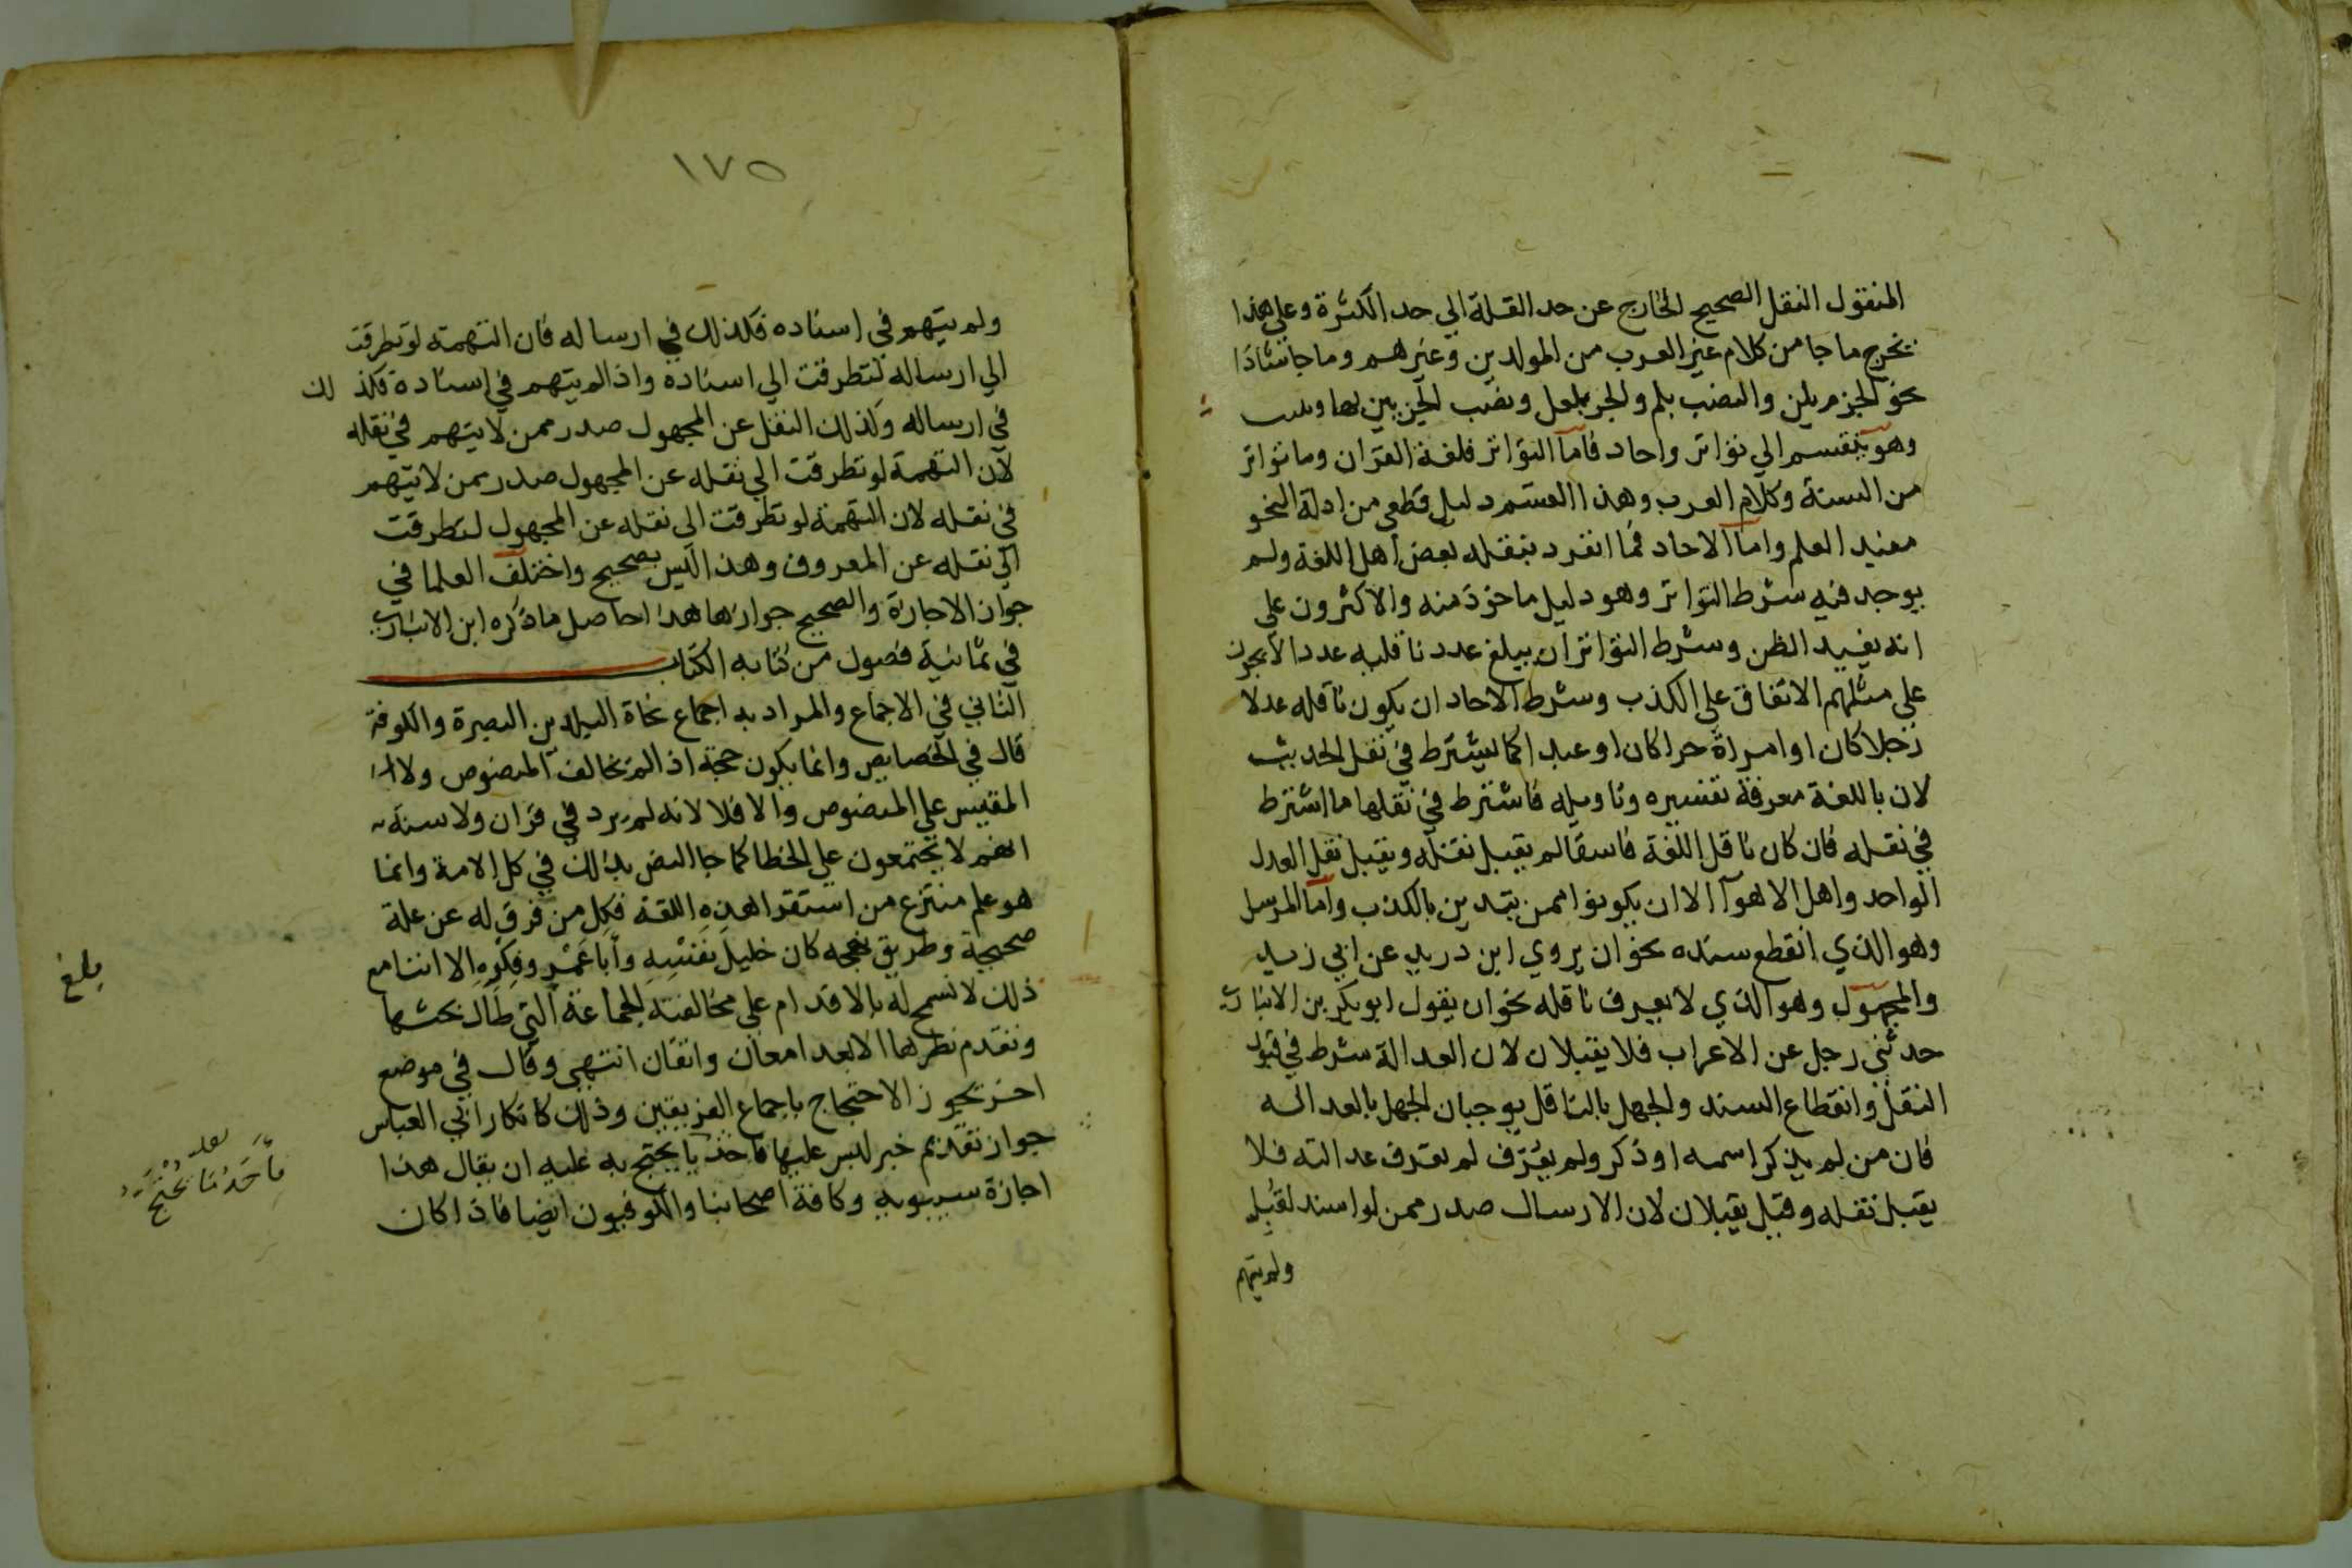 المنقول النقل الصحيح الخارج عن حد القلة الي حد الكثرة وعلي هذا
يخرج ما جا من كلام غير العرب من المولدين وغيرهم وما جا شاذا
نحو الجزم بلن والنصب بلم والجر بلعل ونصب الجزيين بها وبليت
وهو ينقسم الي تواتر واحاد فاما التواتر فلغة القران وما تواتر
من السنة وكلام العرب وهذا القسم دليل قطعي من ادلة النحو
مفيد العلم واما الاحاد فما انفرد بنقله بعض اهل اللغة ولم
يوجد فيه شرط التواتر وهو دليل ماخوذ منه والاكثرون علي
انه يفيد الظن وشرط التواتر ان يبلغ عدد ناقليه عددا لا يجوز
علي مثلهم الاتفاق علي الكذب وشرط الاحاد ان يكون ناقله عدلا
رجلا كان او امراة حرا كان او عبدا كما يشترط في نقل الحديث
لان باللغة معرفة تفسيره وتاويله فاشترط في نقلها ما اشترط
في نقله فان كان ناقل اللغة فاسقا لم يقبل نقله ويقبل نقل العدل
الواحد واهل الاهوآ الا ان يكونوا ممن يتدين بالكذب واما المرسل
وهو الذي انقطع سنده نحو ان يروي ابن دريد عن ابي زيد
والمجهول وهو الذي لا يعرف ناقله نحو ان يقول ابو بكر بن الانباري
حدثني رجل عن الاعراب فلا يقبلان لان العدالة شرط في قبول
النقل وانقطاع السند والجهل بالناقل يوجبان الجهل بالعدالة
فان من لم يذكر اسمه او ذكر ولم يعرف لم تعرف عدالته فلا
يقبل نقله وقيل يقبلان لان الارسال صدر ممن لو اسند لقبل
ولم يتهم
١٧٥
ولم يتهم في اسناده فكذلك في ارساله فان التهمة لو تطرقت
الي ارساله لتطرقت الي اسناده واذا لم يتهم في اسناده فكذلك
في ارساله وكذلك النقل عن المجهول صدر ممن لا يتهم في نقله
لان التهمة لو تطرقت الي نقله عن المجهول صدر ممن لا يتهم
في نقله لان التهمة لو تطرقت الي نقله عن المجهول لتطرقت
الي نقله عن المعروف وهذا ليس بصحيح واختلف العلما في
جواز الاجازة والصحيح جوازها هذا حاصل ما ذكره ابن الانباري
في ثمانية فصول من كتابه الكتاب
الثاني في الاجماع والمراد به اجماع نحاة البلدين البصرة والكوفة
قال في الخصايص وانما يكون حجة اذا لم يخالف المنصوص ولا
المقيس علي المنصوص والا فلا لانه لم يرد في قران ولا سنة
انهم لا يجتمعون علي الخطا كما جا النص بذلك في كل الامة وانما
هو علم منتزع من استقرا هذه اللغة فكل من فرق له عن علة
صحيحة وطريق نهجه كان خليل نفسه وابا عمرو فكره الا اننا مع
ذلك لا نسمح له بالاقدام علي مخالفته للجماعة التي طال بحثها
وتقدم نظرها الا بعد امعان واتقان انتهي وقال في موضع
اخر يجوز الاحتجاج باجماع الفريقين وذلك كانكار ابي العباس
جواز تقديم خبر ليس عليها فاحد ما يحتج به عليه ان يقال هذا
اجازة سيبويه وكافة اصحابنا والكوفيون ايضا فاذا كان
بلغ